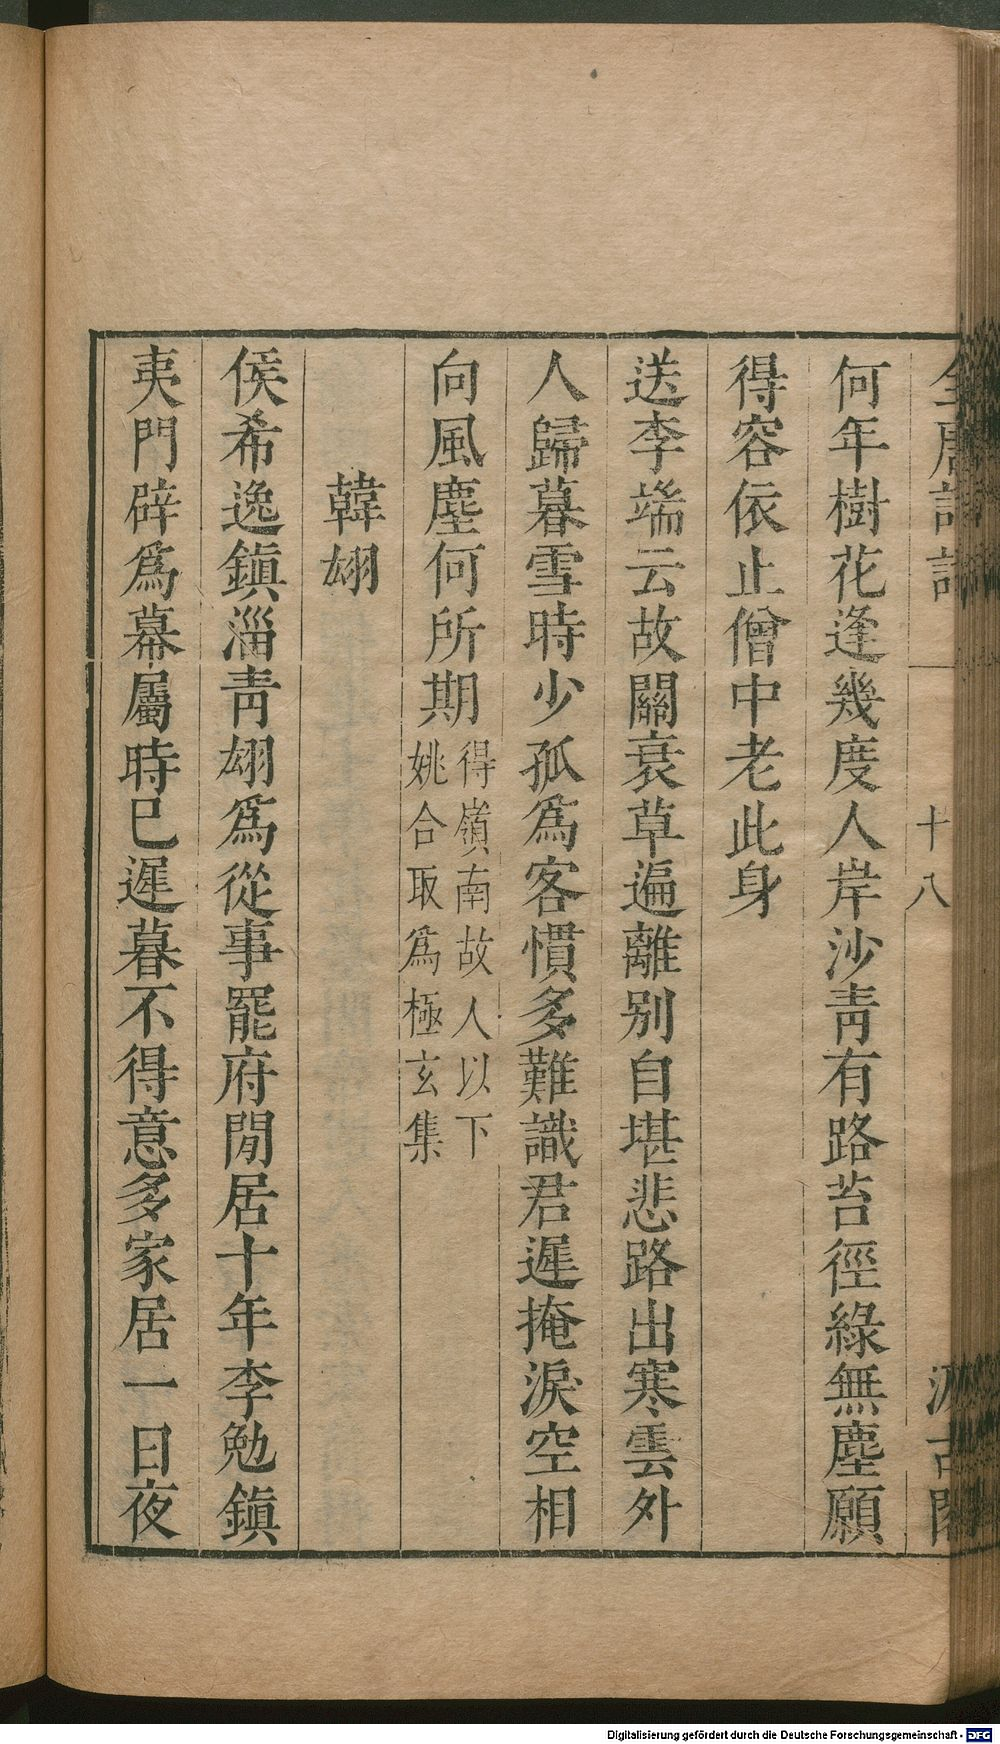 十八
何年樹花逢幾度人岸沙靑有路苔徑綠無塵願
得容依止僧中老此身
送李端云故關衰草遍離别自堪悲路出寒雲外
人歸暮雪時少孤爲客慣多難識君遲掩淚空相
向風塵何所期
得嶺南故人以下
姚合取爲極玄集
韓翃
侯希逸鎭淄靑翃爲從事罷府閒居十年李勉鎭
夷門辟爲幕屬時巳遲暮不得意多家居一日夜
Digitalisierung gefördert durch die Deutsche Forschungsgemeinschaft - DFG